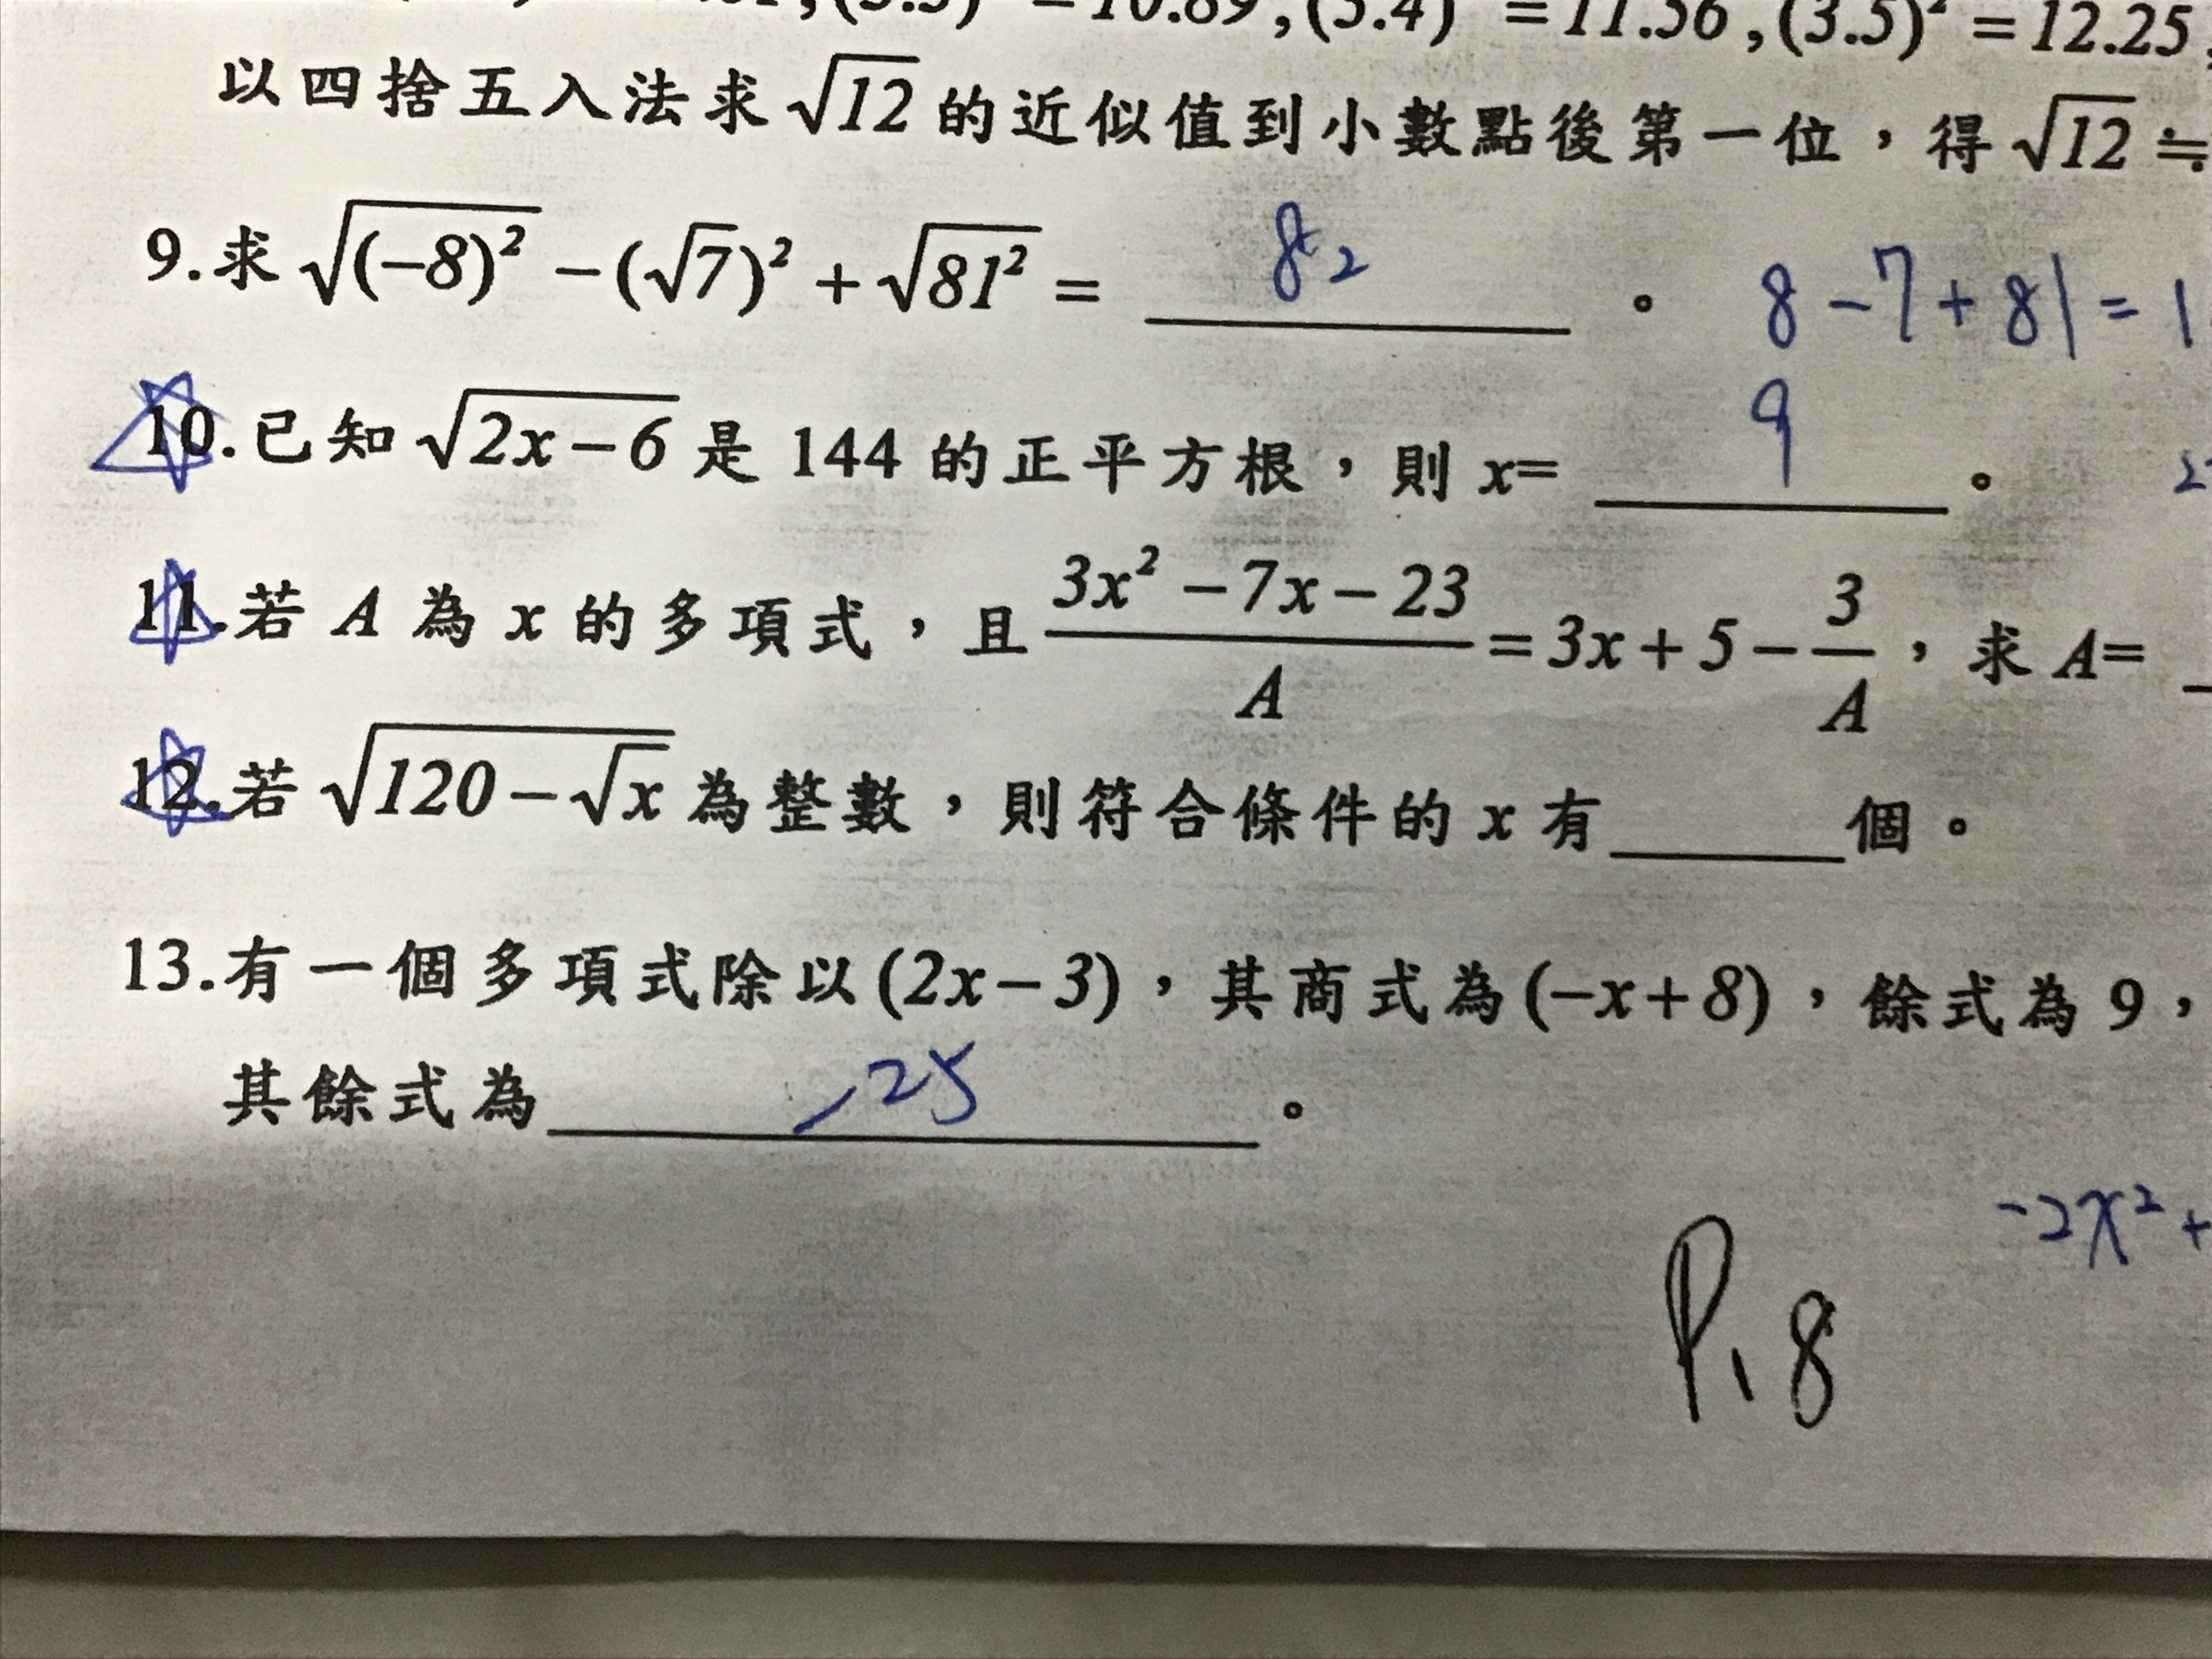 =10.89,(3.4) =11.56,(3.5)² =12.25,
以四捨五入法求√12的近似值到小數點後第一位，得√12≒
9.求√(-8)² -(√7)² +√81² = 82 。 8-7+81=
10.已知√2x-6是144的正平方根，則x= 9 。
11.若A為x的多項式，且(3x²-7x-23)/A=3x+5-3/A，求A=
12.若√120-√x為整數，則符合條件的x有____個。
13.有一個多項式除以(2x-3)，其商式為(-x+8)，餘式為9，
其餘式為 -25 。
-2x²+
P.18